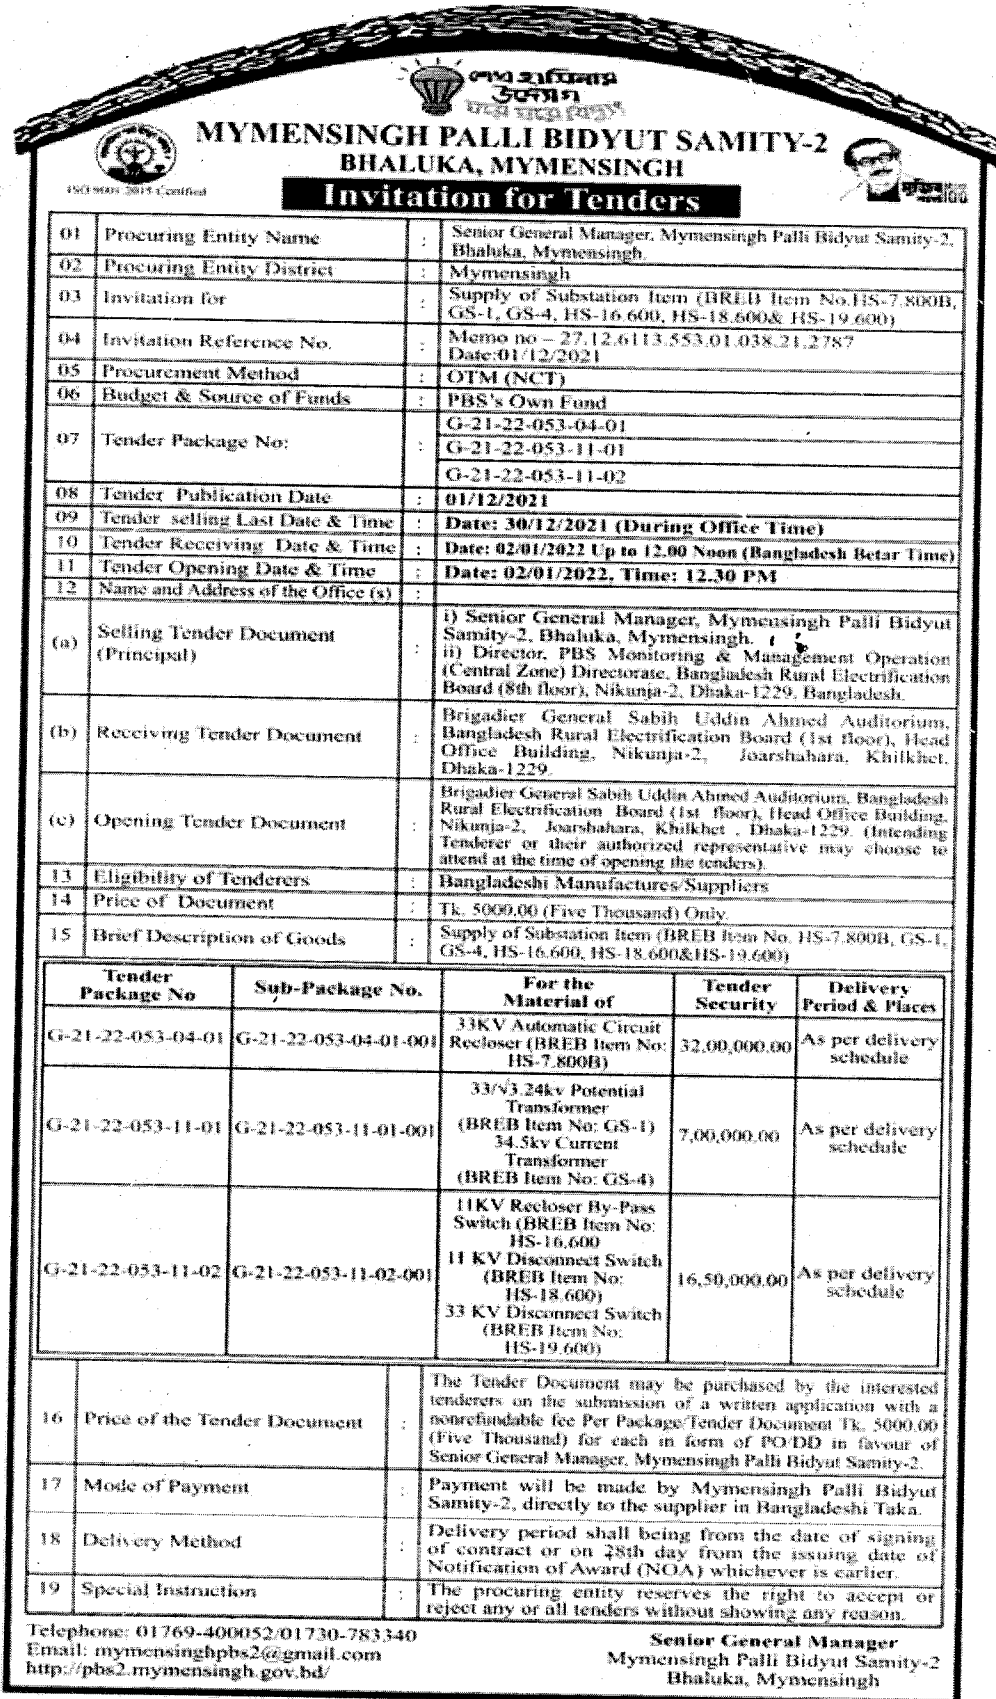 শেখ হাসিনার
উদ্যোগ
ঘরে ঘরে বিদ্যুৎ
MYMENSINGH PALLI BIDYUT SAMITY-2
BHALUKA, MYMENSINGH
ISO 9001:2015 Certified
Invitation for Tenders
01 Procuring Entity Name : Senior General Manager, Mymensingh Palli Bidyut Samity-2,
Bhaluka, Mymensingh.
02 Procuring Entity District : Mymensingh
03 Invitation for : Supply of Substation Item (BREB Item No.HS-7.800B,
GS-1, GS-4, HS-16.600, HS-18.600& HS-19.600)
04 Invitation Reference No. : Memo no – 27.12.6113.553.01.038.21.2787
Date:01/12/2021
05 Procurement Method : OTM (NCT)
06 Budget & Source of Funds : PBS's Own Fund
07 Tender Package No: : G-21-22-053-04-01
G-21-22-053-11-01
G-21-22-053-11-02
08 Tender Publication Date : 01/12/2021
09 Tender selling Last Date & Time : Date: 30/12/2021 (During Office Time)
10 Tender Receiving Date & Time : Date: 02/01/2022 Up to 12.00 Noon (Bangladesh Betar Time)
11 Tender Opening Date & Time : Date: 02/01/2022, Time: 12.30 PM
12 Name and Address of the Office (s) :
(a) Selling Tender Document
(Principal) : i) Senior General Manager, Mymensingh Palli Bidyut
Samity-2, Bhaluka, Mymensingh.
ii) Director, PBS Monitoring & Management Operation
(Central Zone) Directorate, Bangladesh Rural Electrification
Board (8th floor), Nikunja-2, Dhaka-1229, Bangladesh.
(b) Receiving Tender Document : Brigadier General Sabih Uddin Ahmed Auditorium,
Bangladesh Rural Electrification Board (1st floor), Head
Office Building, Nikunja-2, Joarshahara, Khilkhet,
Dhaka-1229.
(c) Opening Tender Document : Brigadier General Sabih Uddin Ahmed Auditorium, Bangladesh
Rural Electrification Board (1st floor), Head Office Building,
Nikunja-2, Joarshahara, Khilkhet , Dhaka-1229. (Intending
Tenderer or their authorized representative may choose to
attend at the time of opening the tenders).
13 Eligibility of Tenderers : Bangladeshi Manufactures/Suppliers
14 Price of Document : Tk. 5000.00 (Five Thousand) Only.
15 Brief Description of Goods : Supply of Substation Item (BREB Item No. HS-7.800B, GS-1,
GS-4, HS-16.600, HS-18.600&HS-19.600)
Tender
Package No
Sub-Package No.
For the
Material of
Tender
Security
Delivery
Period & Places
G-21-22-053-04-01
G-21-22-053-04-01-001
33KV Automatic Circuit
Recloser (BREB Item No:
HS-7.800B)
32,00,000.00
As per delivery
schedule
G-21-22-053-11-01
G-21-22-053-11-01-001
33/√3.24kv Potential
Transformer
(BREB Item No: GS-1)
34.5kv Current
Transformer
(BREB Item No: GS-4)
7,00,000.00
As per delivery
schedule
G-21-22-053-11-02
G-21-22-053-11-02-001
11KV Recloser By-Pass
Switch (BREB Item No:
HS-16,600
11 KV Disconnect Switch
(BREB Item No:
HS-18.600)
33 KV Disconnect Switch
(BREB Item No:
HS-19.600)
16,50,000.00
As per delivery
schedule
16 Price of the Tender Document : The Tender Document may be purchased by the interested
tenderers on the submission of a written application with a
nonrefundable fee Per Package/Tender Document Tk. 5000.00
(Five Thousand) for each in form of PO/DD in favour of
Senior General Manager, Mymensingh Palli Bidyut Samity-2.
17 Mode of Payment : Payment will be made by Mymensingh Palli Bidyut
Samity-2, directly to the supplier in Bangladeshi Taka.
18 Delivery Method : Delivery period shall being from the date of signing
of contract or on 28th day from the issuing date of
Notification of Award (NOA) whichever is earlier.
19 Special Instruction : The procuring entity reserves the right to accept or
reject any or all tenders without showing any reason.
Telephone: 01769-400052/01730-783340
Email: mymensinghpbs2@gmail.com
http://pbs2.mymensingh.gov.bd/
Senior General Manager
Mymensingh Palli Bidyut Samity-2
Bhaluka, Mymensingh